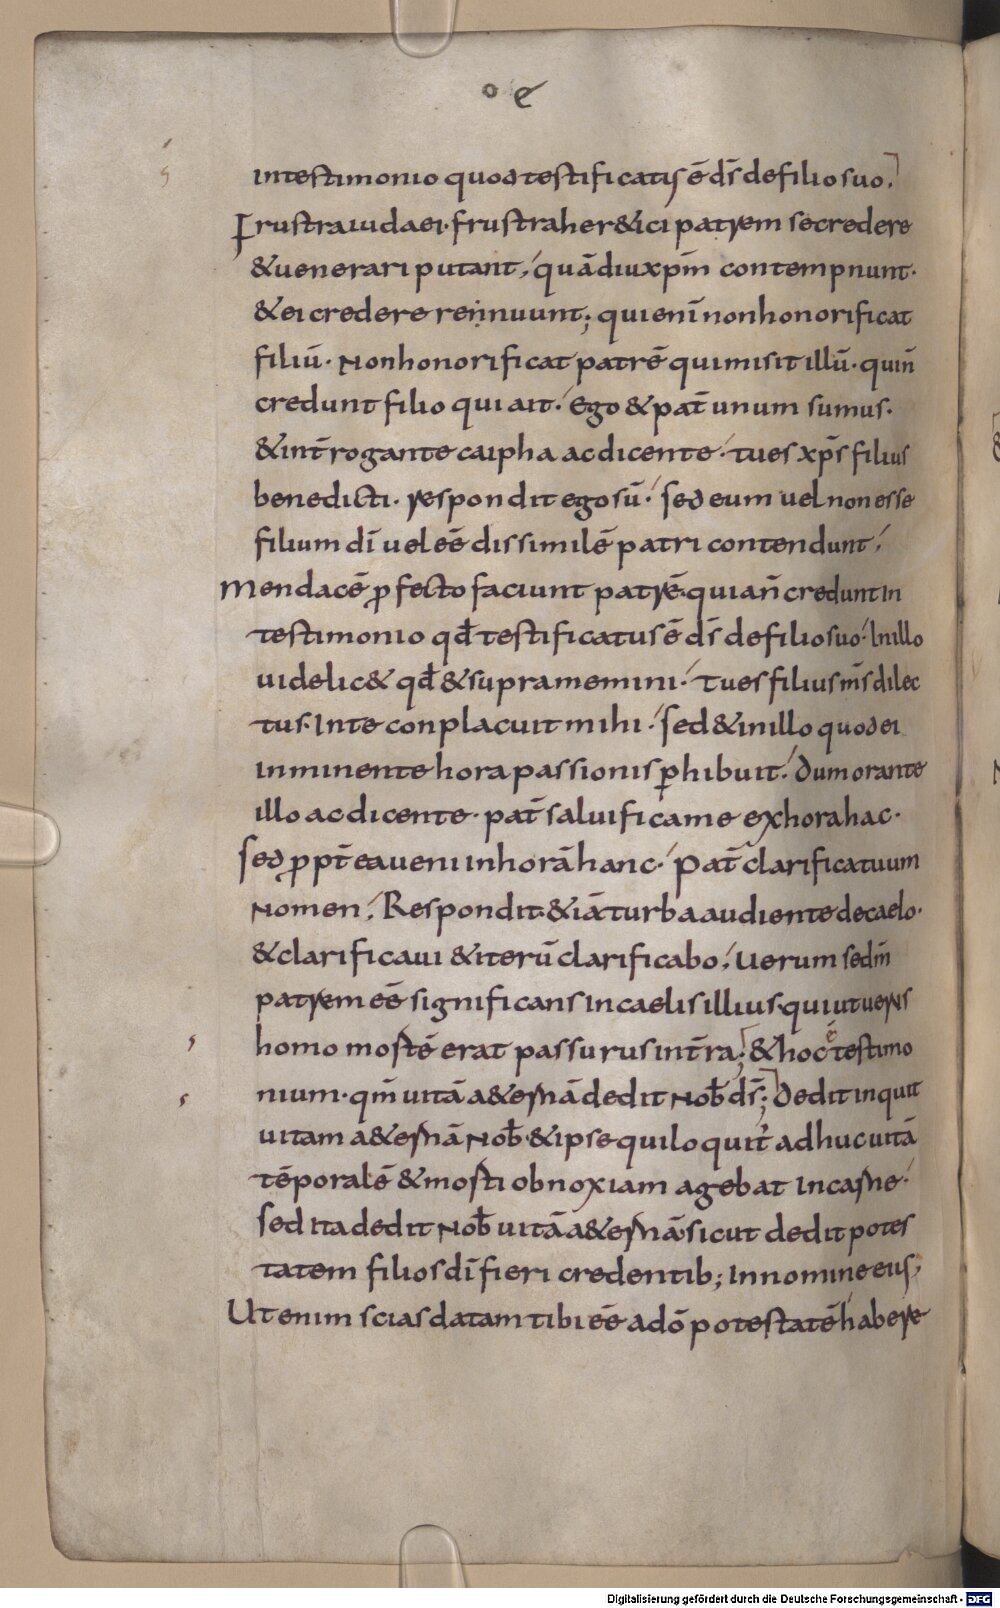 o e
in testimonio quod testificatus ē ds̄ de filio suo.
Frustra iudaei· frustra her&ici patrem se credere
& uenerari putant, quādiu xp̄m contempnunt·
& ei credere rennuunt; qui enī non honorificat
filiū· Non honorificat patrē qui misit illū· qui n̄
credunt filio qui ait· Ego & pat̄ unum sumus·
& int̄rogante caipha ac dicente· tu es xp̄s filius
benedicti· respondit ego sū· sed eum uel non esse
filium dī uel eē dissimilē patri contendunt,
Mendacē ꝓfecto faciunt patrē· quia n̄ credunt in
testimonio qđ testificatus ē ds̄ de filio suo· In illo
uidelic& qđ & supra memini· Tu es filius m̄s dilec
tus· In te conplacuit mihi· sed & in illo quod ei
inminente hora passionis ꝑhibuit· Dum orante
illo ac dicente· pat̄ saluifica me ex hora hac·
sed ꝓpt̄ ea ueni in horā hanc· Pat̄ clarifica tuum
Nomen, Respondit· & iā turba audiente de caelo·
& clarificaui & iterū clarificabo, Uerum sed m̄
patrem eē significans in caelis illius· qui ut uerus
homo mortē erat passurus in t̄ra; & hoc ē testimo
nium· qm̄ uitā a&ernā dedit Nob̄ ds̄; Dedit inquit
uitam a&ernā Nob̄· & ipse qui loquit̄ adhuc uitā
tēporalē & morti obnoxiam agebat in carne·
sed ita dedit Nob̄ uitā a&ernā· sicut dedit potes
tatem filios dī fieri credentib; In nomine eius,
Ut enim scias datam tibi eē a dō potestatē habere
Digitalisierung gefördert durch die Deutsche Forschungsgemeinschaft - DFG